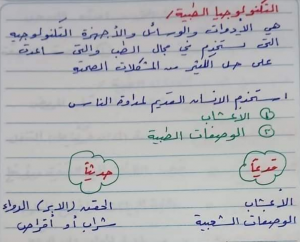 التكنولوجيا الطبية/
هي الأدوات والوسائل والأجهزة التكنولوجية
التى تستخدم في مجال الطب والتى ساعدت
على حل الكثير من المشكلات الصحية
استخدم الانسان القديم لمداواة الناس
① الاعشاب
② الوصفات الطبية
قديماً
حديثاً
الأعشاب
الوصفات الشعبية
الحقن (الابر) الدواء
شراب أو أقراص